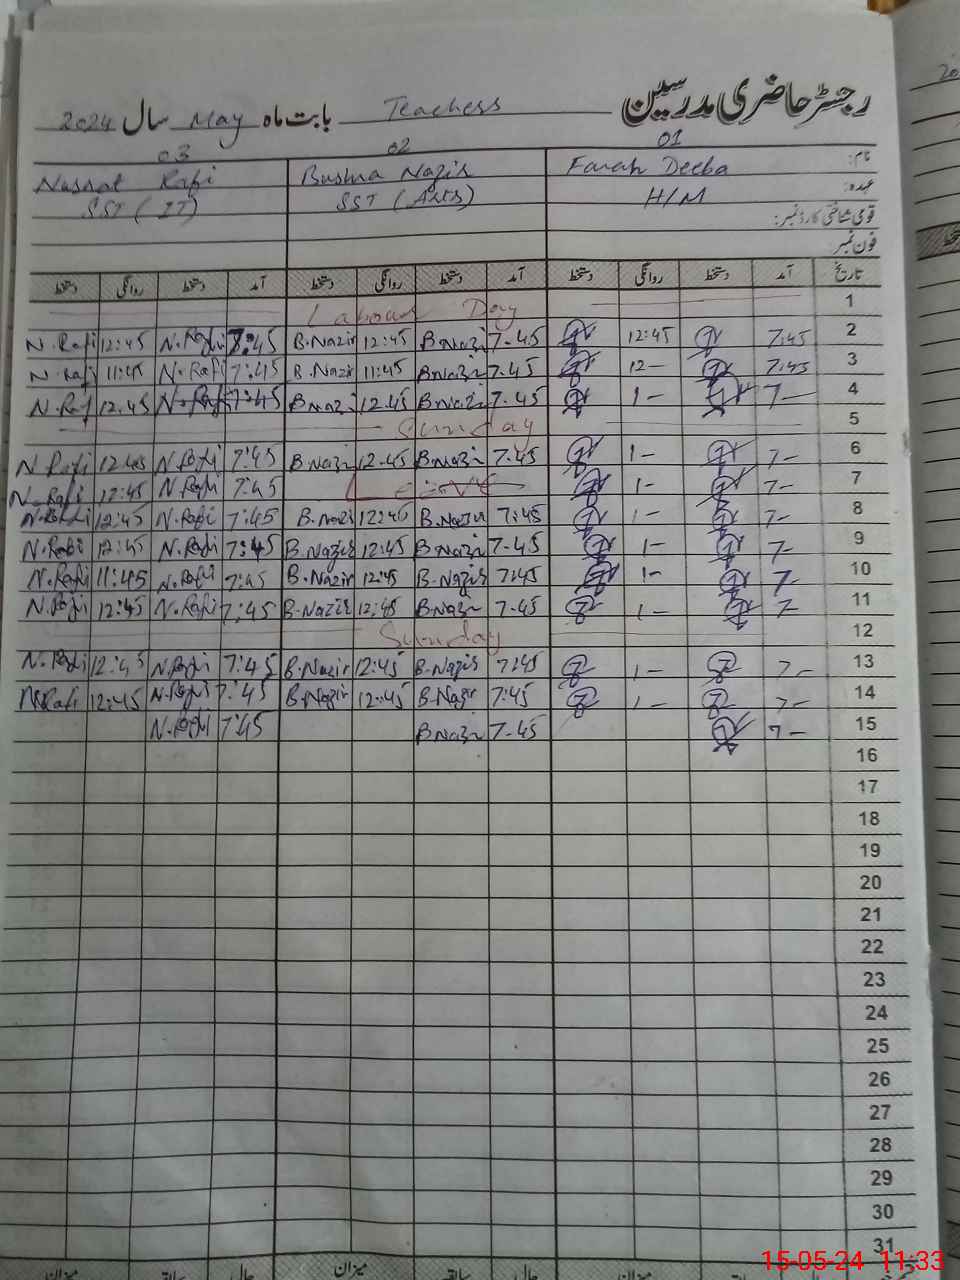 رجسٹر حاضری مدرسین Teachers بابت ماہ May سال 2024
01 02 03
نام: Farah Deeba Bushra Nazir Nusrat Rafi
عہدہ: H/M SST (Arts) SST (IT)
قومی شناختی کارڈ نمبر:
فون نمبر:
تاریخ آمد دستخط روانگی دستخط آمد دستخط روانگی دستخط آمد دستخط روانگی دستخط
1 Labour Day
2 7:45 12:45 7-45 B.Nazir 12:45 B.Nazir 7:45 N.Rafi 12:45 N.Rafi
3 7:45 12- 7-45 B.Nazir 11:45 B.Nazir 7:45 N.Rafi 11:45 N.Rafi
4 7- 1- 7-45 B.Nazir 12.45 B.Nazir 7:45 N.Rafi 12.45 N.Rafi
5 Sunday
6 7- 1- 7-45 B.Nazir 12.45 B.Nazir 7:45 N.Rafi 12:45 N.Rafi
7 7- 1- Leave 7:45 N.Rafi 12:45 N.Rafi
8 7- 1- 7:45 B.Nazir 12:45 B.Nazir 7:45 N.Rafi 12:45 N.Rafi
9 7- 1- 7-45 B.Nazir 12:45 B.Nazir 7:45 N.Rafi 12:45 N.Rafi
10 7- 1- 7:45 B.Nazir 12:45 B.Nazir 7:45 N.Rafi 11:45 N.Rafi
11 7- 1- 7-45 B.Nazir 12:45 B.Nazir 7:45 N.Rafi 12:45 N.Rafi
12 Sunday
13 7- 1- 7:45 B.Nazir 12:45 B.Nazir 7:45 N.Rafi 12:45 N.Rafi
14 7- 1- 7:45 B.Nazir 12:45 B.Nazir 7:45 N.Rafi 12:45 N.Rafi
15 7- 7-45 B.Nazir 7:45 N.Rafi
16
17
18
19
20
21
22
23
24
25
26
27
28
29
30
31
میزان حال سابقہ میزان حال سابقہ میزان
15-05-24 11:33